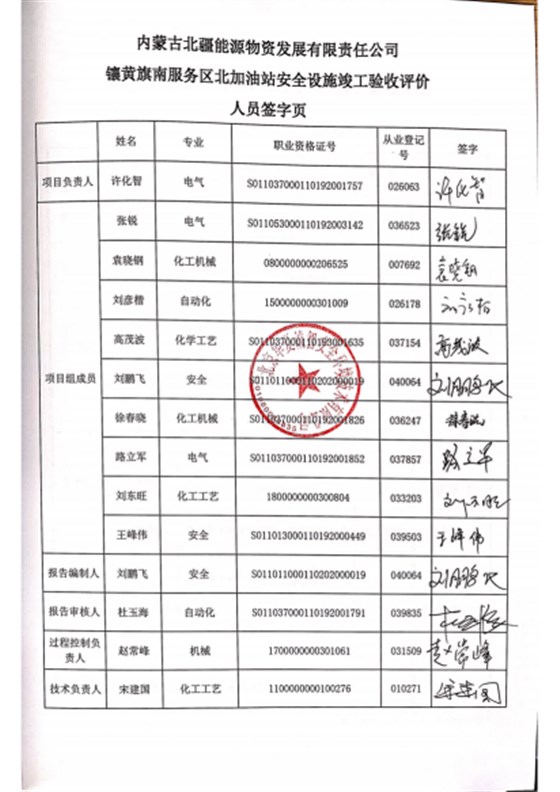 内蒙古北疆能源物资发展有限责任公司
镶黄旗南服务区北加油站安全设施竣工验收评价
人员签字页
姓名 专业 职业资格证号 从业登记号 签字
项目负责人 许化智 电气 S011037000110192001757 026063 许化智
项目组成员
张锐 电气 S011053000110192003142 036523 张锐
袁晓钢 化工机械 0800000000206525 007692 袁晓钢
刘彦楷 自动化 1500000000301009 026178
高茂波 化学工艺 S011037000110193001635 037154 高茂波
刘鹏飞 安全 S011011000110202000019 040064 刘鹏飞
徐春晓 化工机械 S011037000110192001826 036247 徐春晓
路立军 电气 S011037000110192001852 037857 路立军
刘东旺 化工工艺 1800000000300804 033203 刘东旺
王峰伟 安全 S011013000110192000449 039503 王峰伟
报告编制人 刘鹏飞 安全 S011011000110202000019 040064 刘鹏飞
报告审核人 杜玉海 自动化 S011037000110192001791 039835
过程控制负责人 赵常峰 机械 1700000000301061 031509 赵常峰
技术负责人 宋建国 化工工艺 1100000000100276 010271 宋建国